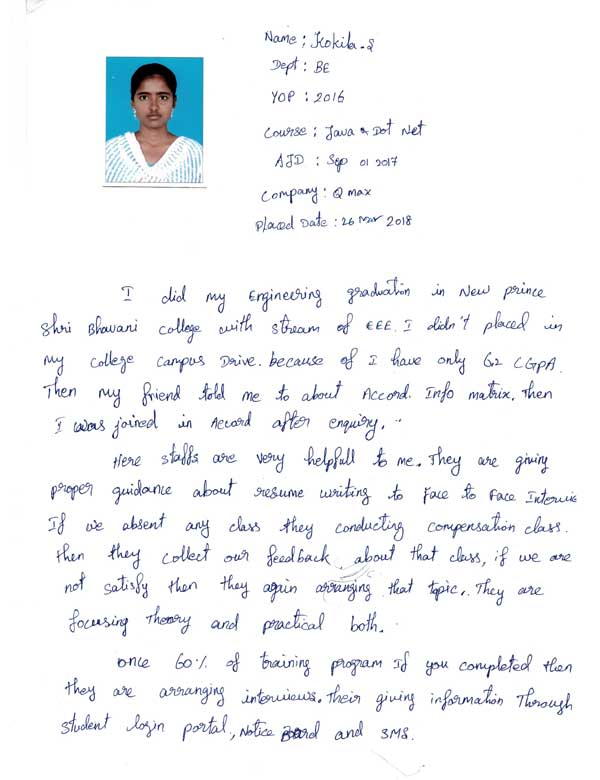 Name : Kokila.S
Dept : BE
YOP : 2016
Course : Java & Dot Net
AJD : Sep 01 2017
Company : Q max
Placed Date : 26 Mar 2018
I did my Engineering graduation in New prince
Shri Bhavani college with stream of EEE. I didn't placed in
my college campus Drive. because of I have only 6.2 CGPA.
Then my friend told me to about Accord. Info matrix. Then
I was joined in Accord after enquiry.
Here staffs are very helpfull to me. They are giving
proper guidance about resume writing to Face to Face Intervie
If we absent any class they conducting compensation class.
then they collect our feedback about that class, if we are
not satisfy then they again arranging that topic. They are
focusing Theory and practical both.
once 60% of training program If you completed then
they are arranging interviews. Their giving information Through
student login portal, Notice Board and SMS.